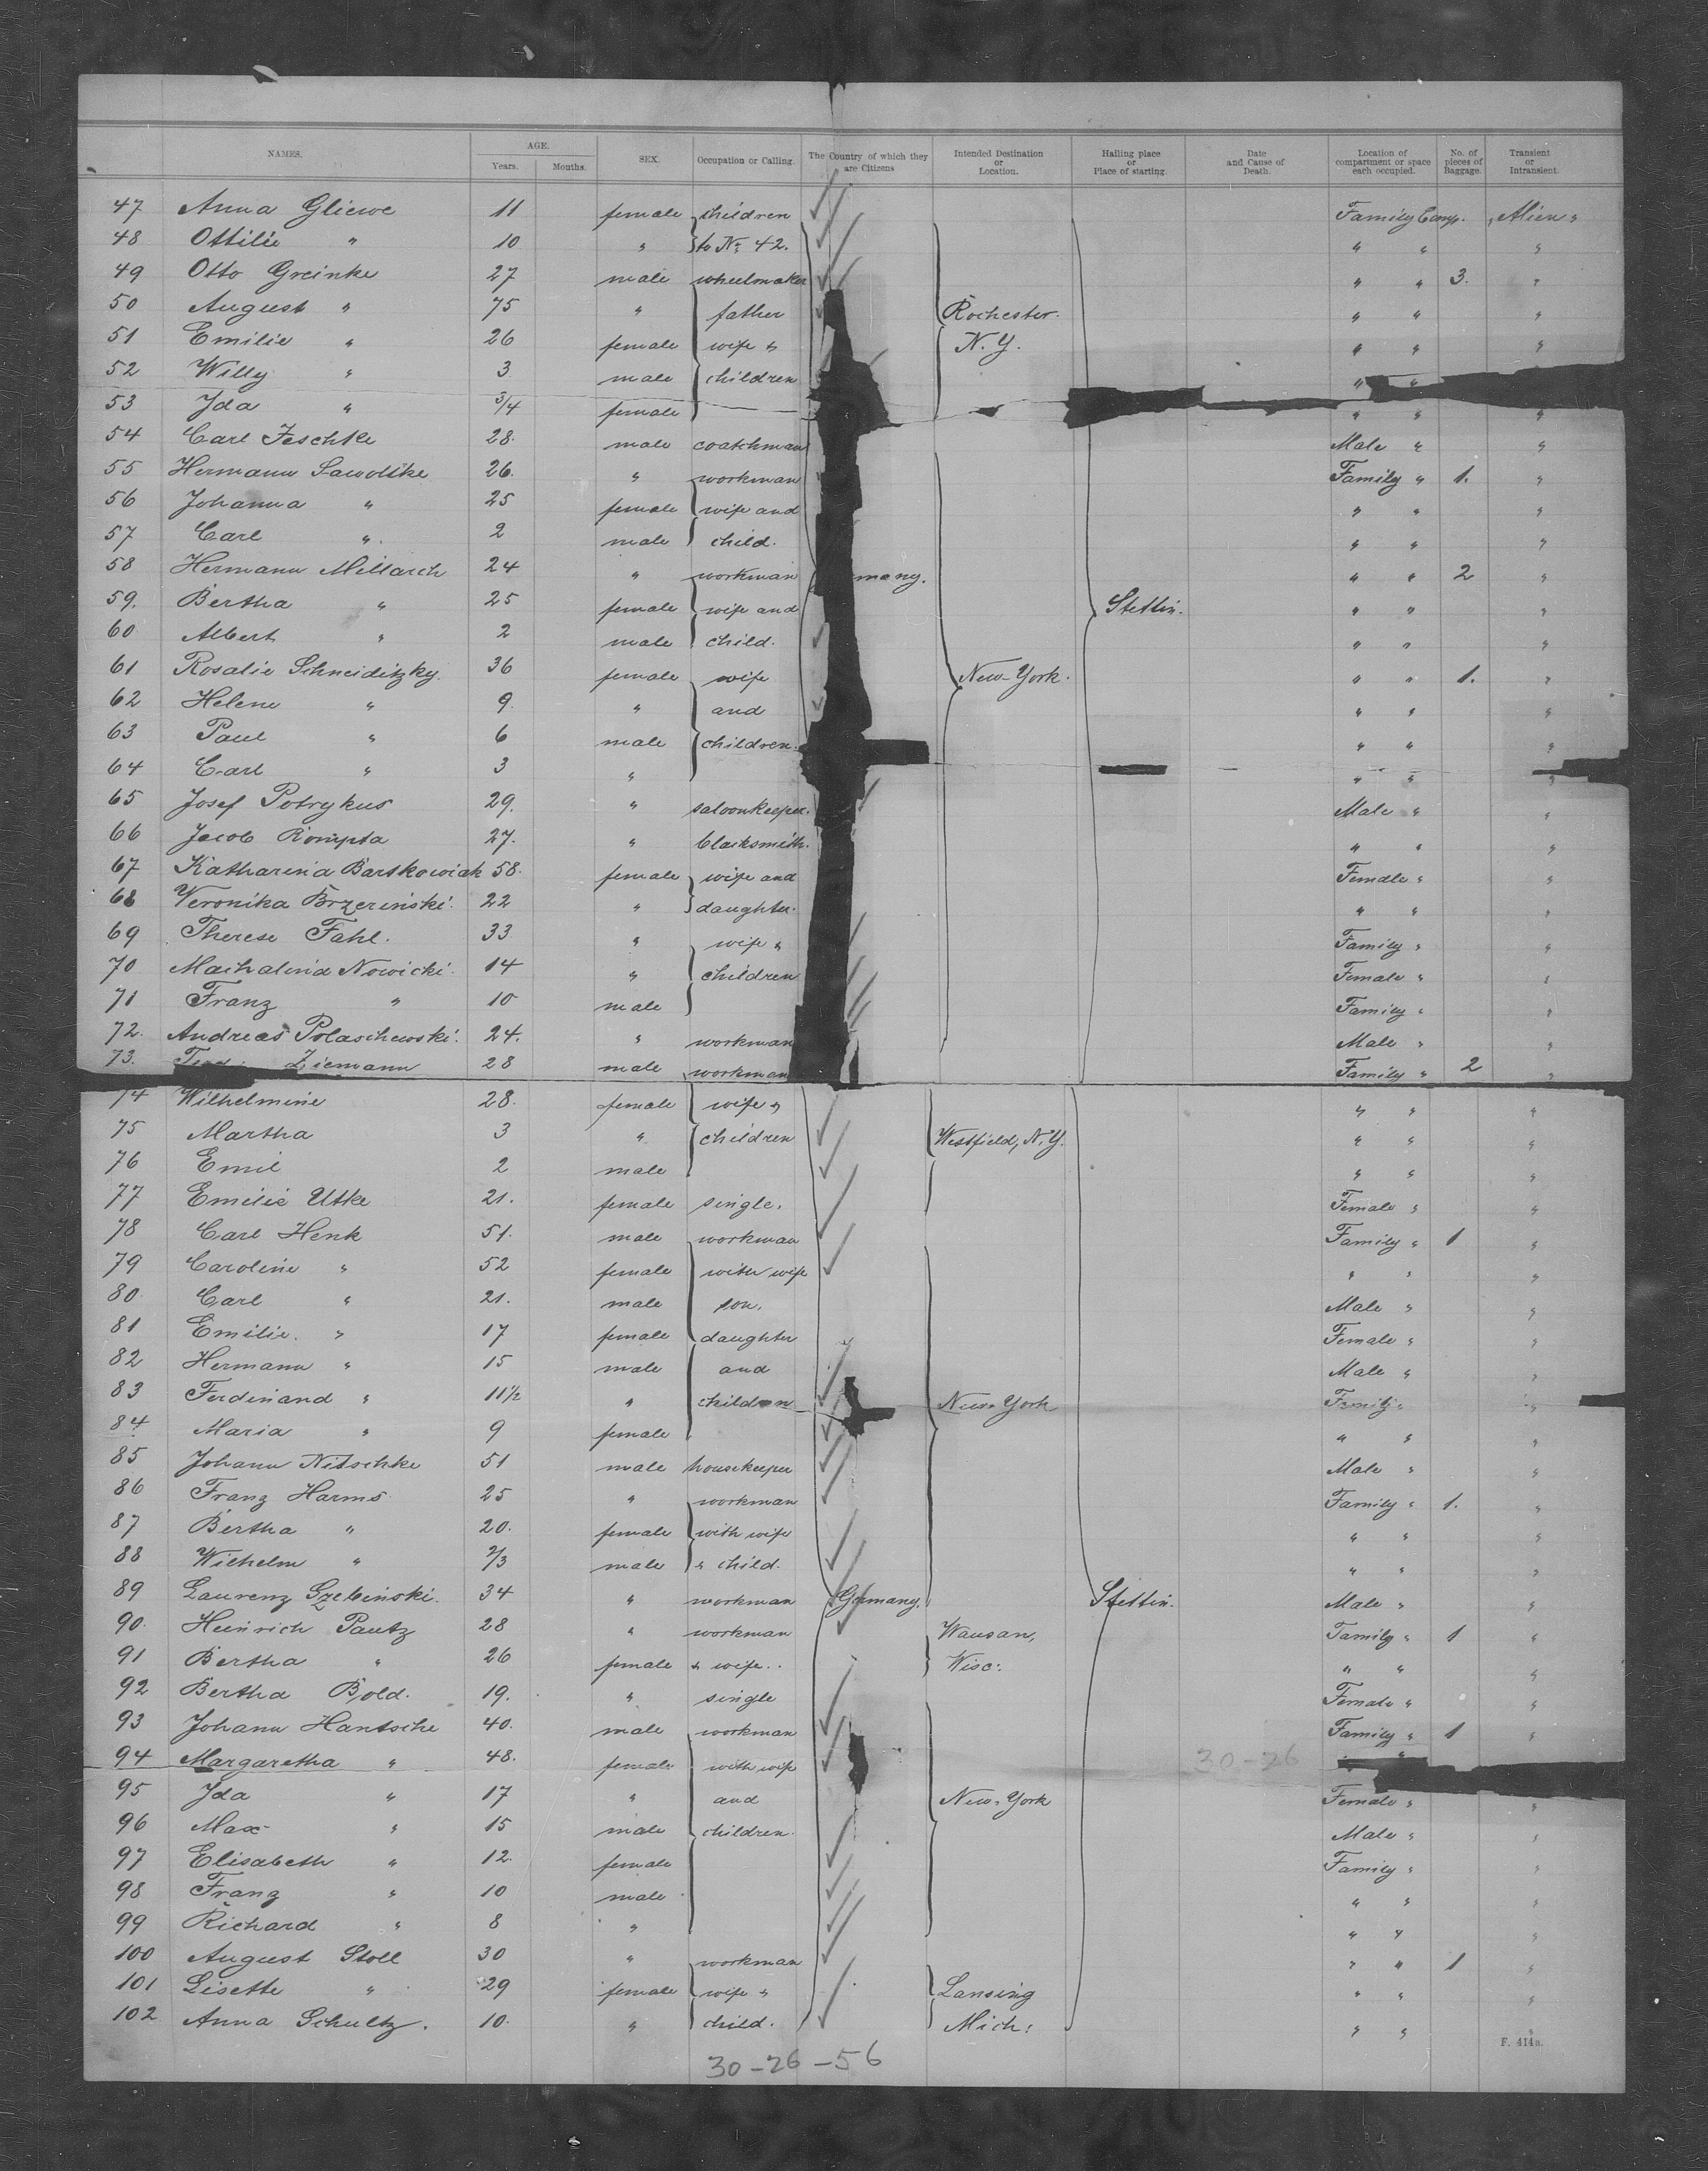 NAMES. AGE. Years. Months. SEX. Occupation or Calling. The Country of which they are Citizens Intended Destination or Location. Hailing place or Place of starting. Date and Cause of Death. Location of compartment or space each occupied. No. of pieces of Baggage. Transient or Intransient.
47 Anna Gliewe 11 female children Family Comp. „Alien„
48 Ottilie " 10 " to No 42. " " "
49 Otto Greinke 27 male wheelmaker " " 3. "
50 August " 75 " father Rochester. " " "
51 Emilie " 26 female wife " N.Y. " " "
52 Willy " 3 male children " "
53 Ida " 3/4 female " " "
54 Carl Jeschke 28. male coatchman Male " "
55 Hermann Sawolske 26. " workman Family " 1. "
56 Johanna " 25 female wife and " " "
57 Carl " 2 male child. " " "
58 Hermann Millarch 24 " workman many. " " 2 "
59. Bertha " 25 female wife and Stettin. " " "
60 Albert " 2 male child. " " "
61 Rosalie Schneiditzky. 36 female wife New-York. " " 1. "
62 Helene " 9. " and " " "
63 Paul " 6 male children. " " "
64 Carl " 3 " " " "
65 Josef Potrykus 29. " saloonkeeper. Male " "
66 Jacob Rompta 27. " blacksmith. " " "
67 Katharina Bartkowiak 58. female wife and Female " "
68 Veronika Brzerinski. 22 " daughter. " " "
69 Therese Fahl. 33 " wife " Family " "
70 Machalina Nowicki. 14 " children Female " "
71 Franz " 10 male Family " "
72. Andreas Polaschewski. 24. " workman Male " "
73. Ziemann 28 male workman Family " 2 "
74 Wilhelmine 28. female wife " " " "
75 Martha 3 " children Westfield, N.Y. " " "
76 Emil 2 male " " "
77 Emilie Utke 21. female single. Female " "
78 Carl Henk 51. male workman Family " 1 "
79 Caroline " 52 female with wife " " "
80. Carl " 21. male son. Male " "
81 Emilie. " 17 female daughter Female " "
82 Hermann " 15 male and Male " "
83 Ferdinand " 11 1/2 " children New-York Family " "
84 Maria " 9 female " " "
85 Johann Nitschke 51 male housekeeper Male " "
86 Franz Harms 25 " workman Family " 1. "
87 Bertha " 20. female with wife " " "
88 Wilhelm " 2/3 male " child. " " "
89 Laurenz Gzebinski. 34 " workman Germany. Stettin. Male " "
90. Heinrich Pautz 28 " workman Wausan, Family " 1 "
91 Bertha " 26 female " wife. Wisc: " " "
92 Bertha Bold. 19. " single Female " "
93 Johann Hantsche 40. male workman Family " 1 "
94 Margaretha " 48. female with wife 30-26 "
95 Ida " 17 " and New-York Female " "
96 Max " 15 male children. Male " "
97 Elisabeth " 12. female Family " "
98 Franz " 10 male " " "
99 Richard " 8 " " " "
100 August Stoll 30 " workman " " 1 "
101 Lisette " 29 female wife " Lansing " " "
102 Anna Schultz. 10. " child. Mich: " " "
F. 414a.
30-26-56